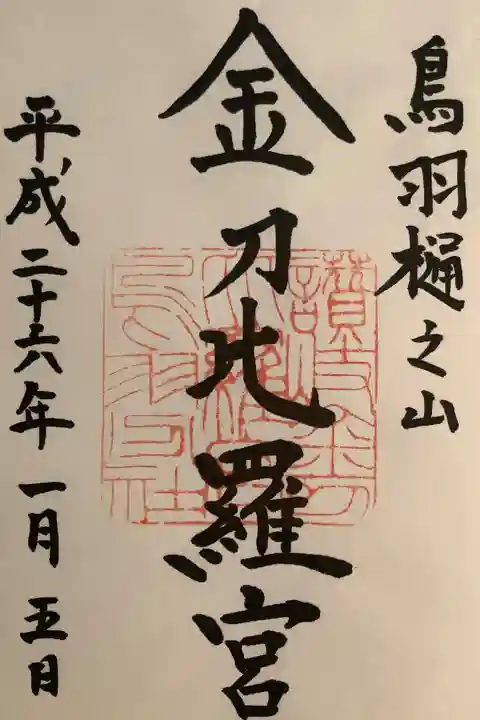 鳥羽樋之山
金刀比羅宮
平成二十六年一月五日